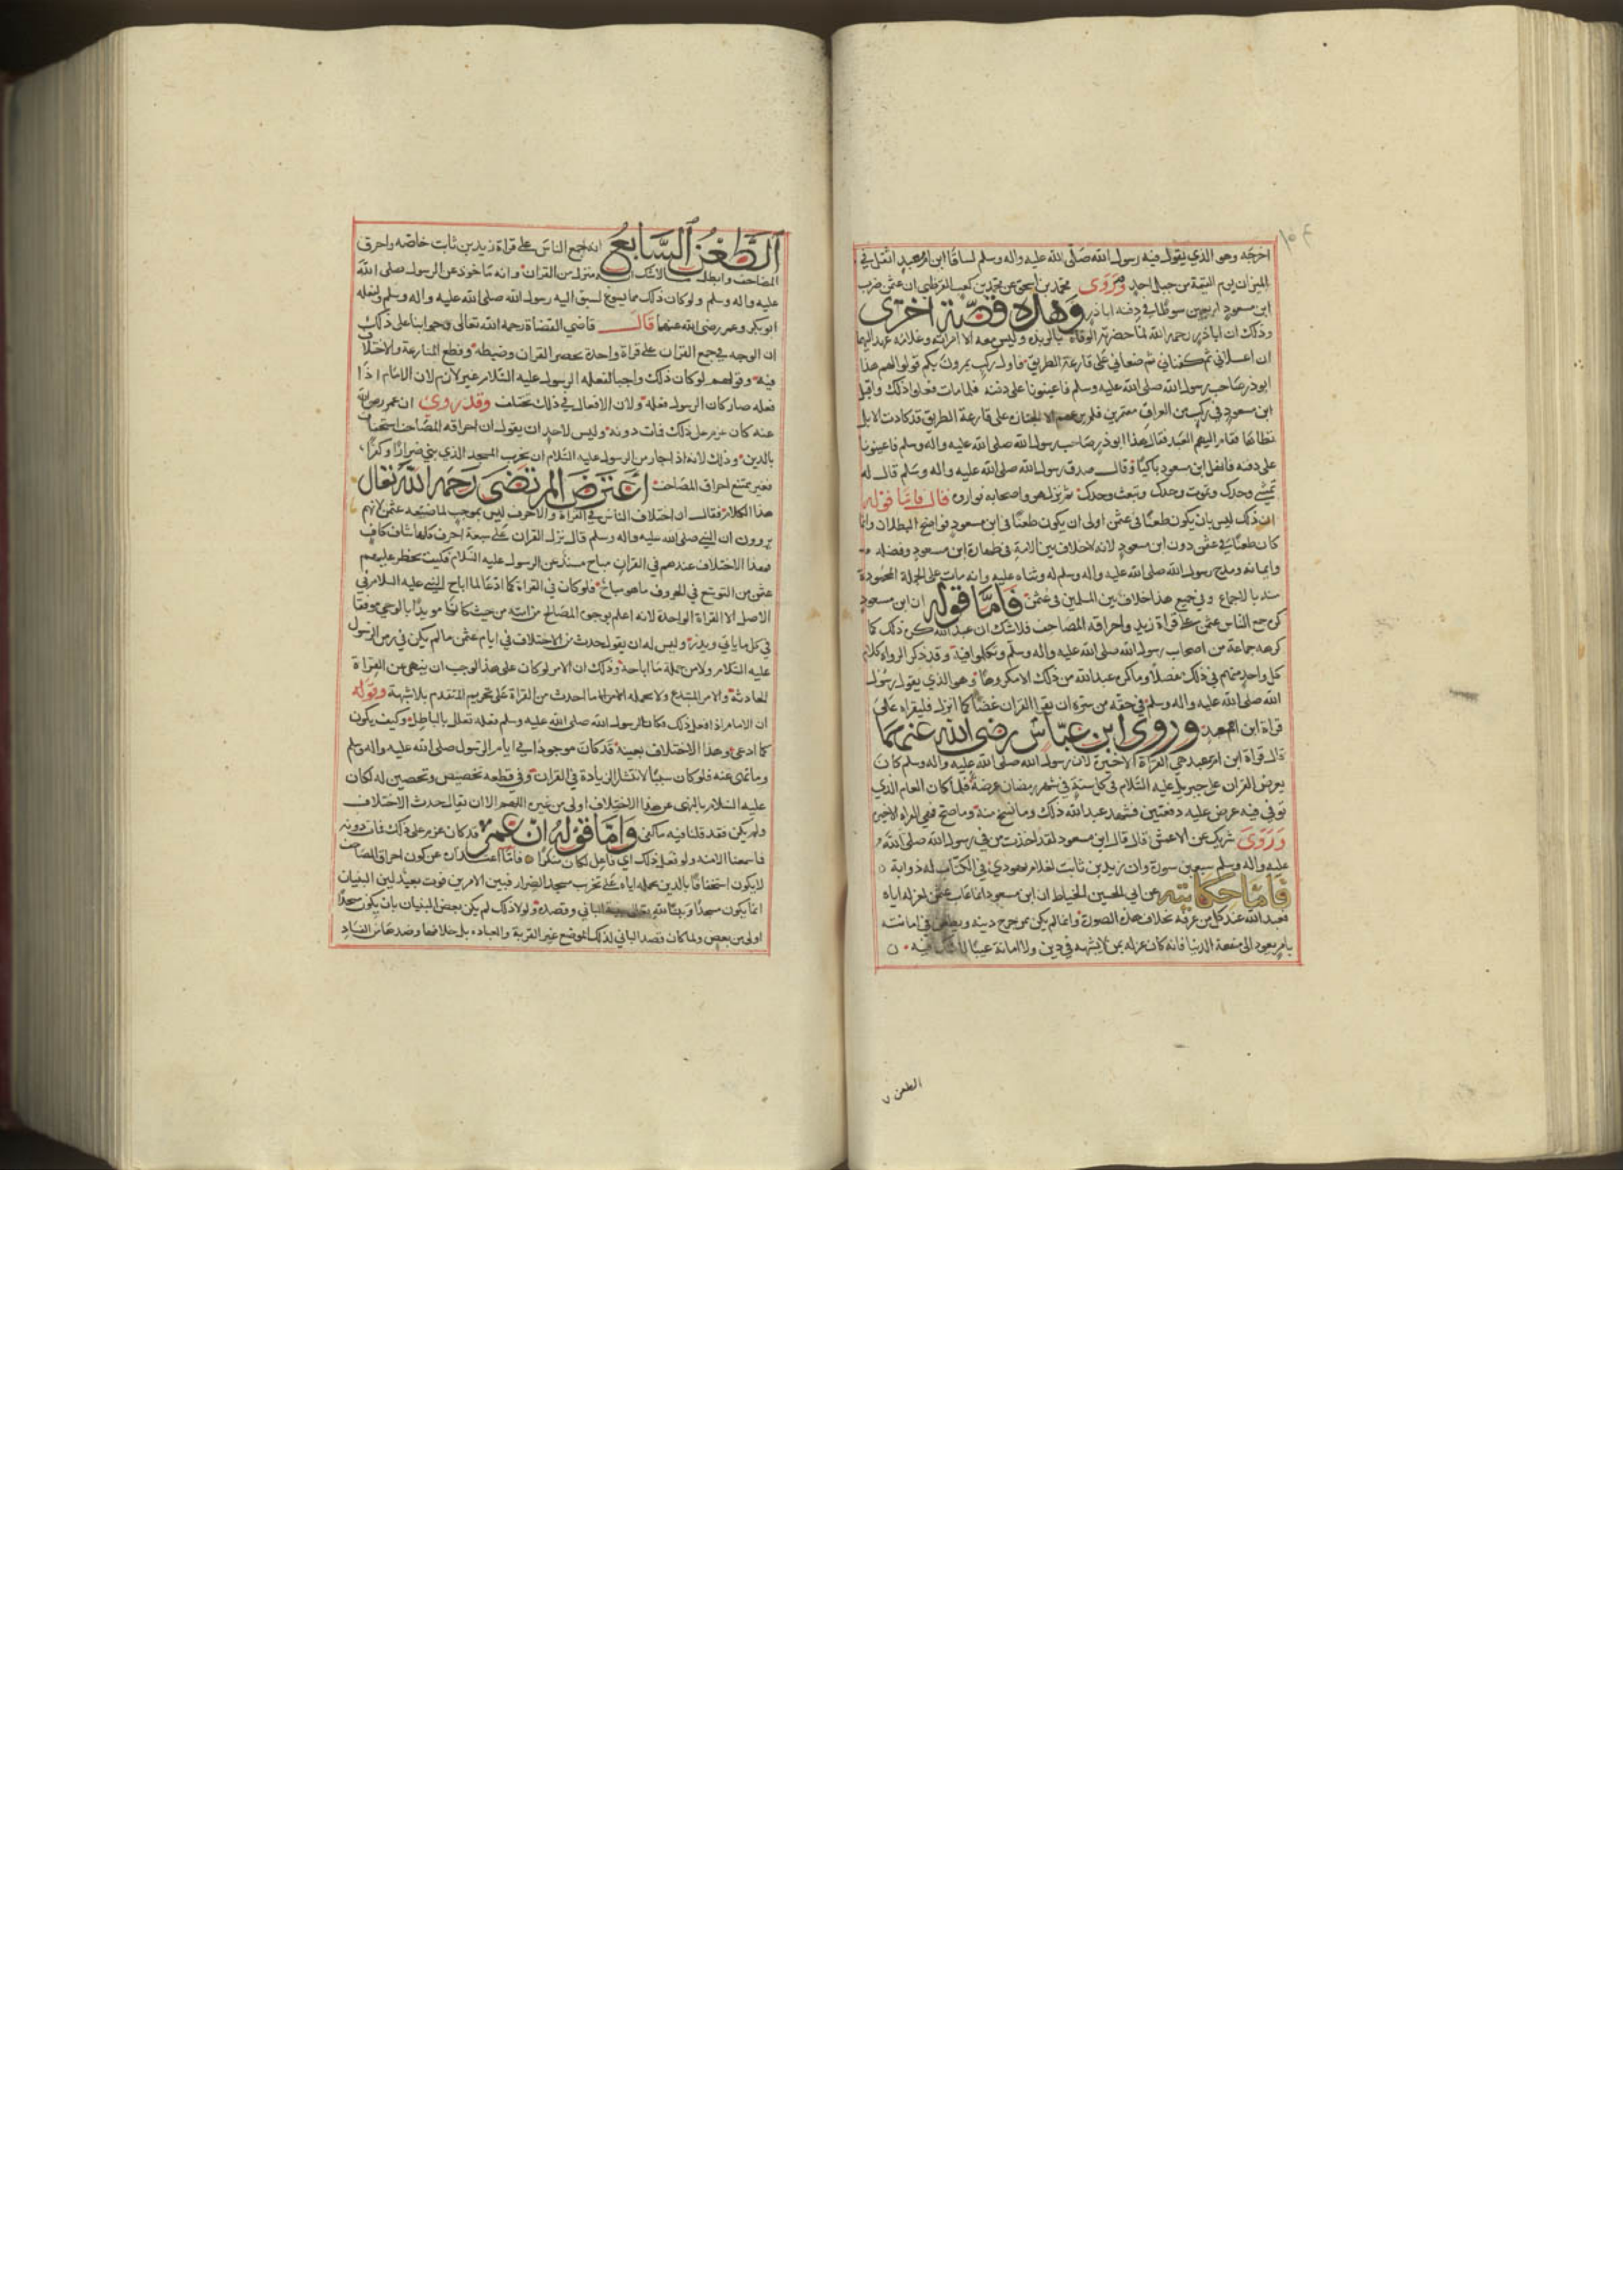 اخرجه وهو الذي يقول فيه رسول الله صلى الله عليه واله وسلم لساقا ابن ام عبد اثقل في
الميزان يوم القيمة من جبل احد وروى محمد بن اسحق عن محمد بن كعب القرظي ان عثمن ضرب
ابن مسعود اربعين سوطا في دفنه اباذر وهذه قصة اخرى
وذلك ان اباذر رحمه الله لما حضرته الوفاة بالربذة وليس معه الا امراته وغلامه عهد اليهما
ان اغسلاني ثم كفناني ثم ضعاني على قارعة الطريق فاول ركب يمرون بكم قولوا لهم هذا
ابوذر صاحب رسول الله صلى الله عليه وسلم فاعينونا على دفنه فلما مات فعلوا ذلك واقبل
ابن مسعود في ركب من العراق معتمرين فلم يرعهم الا الجنازة على قارعة الطريق قد كادت الابل
تطاها فقام اليهم العبد فقال هذا ابوذر صاحب رسول الله صلى الله عليه واله وسلم فاعينونا
على دفنه فانهل ابن مسعود باكيا وقال صدق رسول الله صلى الله عليه واله وسلم قال له
تمشي وحدك وتموت وحدك وتبعث وحدك ثم نزل هو واصحابه فواروه قال فاما قوله
ان ذلك ليس بان يكون طعنا في عثمن اولى ان يكون طعنا في ابن مسعود فواضح البطلان وانما
كان طعنا في عثمن دون ابن مسعود لانه لاخلاف بين الامة في طهارة ابن مسعود وفضله
وايمانه ومدح رسول الله صلى الله عليه واله وسلم له وثناه عليه وانه مات على الجملة المحمودة
منه بالاجماع وفي جميع هذا خلاف بين المسلمين في عثمن فاما قوله ان ابن مسعود
كره جمع الناس عثمن على قراة زيد واحراقه المصاحف فلاشك ان عبد الله كره ذلك كما
كرهه جماعة من اصحاب رسول الله صلى الله عليه واله وسلم وتكلموا فيه وقد ذكر الرواه كلام
كل واحد منهم في ذلك مفصلا وما كره عبد الله من ذلك الا مكروها وهو الذي يقول رسول
الله صلى الله عليه واله وسلم في حقه من سره ان يقرا القران غضا كما انزل فليقراه على
قراة ابن ام عبد وروى ابن عباس رضي الله عنهما
قال قراة ابن ام عبد هي القراة الاخيرة لان رسول الله صلى الله عليه واله وسلم كان
يعرض القران على جبريل عليه السلام في كل سنة في شهر رمضان عرضة فلما كان العام الذي
توفي فيه عرض عليه دفعتين فشهد عبد الله ذلك وما نسخ منه وما صح فهي القراه الاخيره
وروى شريك عن الاعمش قال قال ابن مسعود لقد اخذت من في رسول الله صلى الله
عليه واله وسلم سبعين سورة وان زيد بن ثابت لغلام يهودي في الكتاب له ذوابة
فاما حكايته عن ابي الحسين الخياط ان ابن مسعود انما عاب عثمن لعزله اياه
فعبد الله عند كل من عرفه بخلاف هذه الصورة وانه لم يكن ممن يخرج دينه ويطعن في امانته
بامر يعود الى منفعة الدنيا فانه كان عزله بمن لا يشبهه في دين ولا امانة عيبا لاشك فيه
الطعن
الطعن السابع انه جمع الناس على قراة زيد بن ثابت خاصه واحرق
المصاحف وابطل مالاشك انه منزل من القران وانه ماخوذ عن الرسول صلى الله
عليه واله وسلم ولو كان ذلك مما يسوغ لسبق اليه رسول الله صلى الله عليه واله وسلم ولفعله
ابوبكر وعمر رضي الله عنهما قال قاضي القضاة رحمه الله تعالى وجوابنا على ذلك
ان الوجه في جمع القران على قراة واحدة تحصين القران وضبطه وقطع المنازعة والاختلاف
فيه وقولهم لو كان ذلك واجبا لفعله الرسول عليه السلام غير لازم لان الامام اذا
فعله صار كان الرسول فعله ولان الافعال في ذلك تختلف وقد روى ان عمر رضي الله
عنه كان عزم على ذلك فمات دونه وليس لاحد ان يقول ان احراقه المصاحف استخفاف
بالدين وذلك لانه اذا جاز من الرسول عليه السلام ان يخرب المسجد الذي بني ضرارا وكفرا
فغير ممتنع احراق المصاحف اعترض المرتضى رحمه الله تعالى
هذا الكلام فقال ان اختلاف الناس في القراة والاحرف ليس بموجب لما صنعه عثمن لانهم
يروون ان النبي صلى الله عليه واله وسلم قال نزل القران على سبعة احرف كلها شاف كاف
فهذا الاختلاف عندهم في القران مباح مسند عن الرسول عليه السلام فكيف يحظر عليهم
عثمن من التوسع في الحروف ماهو مباح فلو كان في القراة كما ادعا لما اباح النبي عليه السلام في
الاصل الا القراة الواحدة لانه اعلم بوجوه المصالح من امته من حيث كان مويدا بالوحي موفقا
في كل ماياتي ويذر وليس له ان يقول حدث من الاختلاف في ايام عثمن مالم يكن في زمن الرسول
عليه السلام ولا من جملة ما اباحه وذلك ان الامر لو كان على هذا لوجب ان ينهى عن القراة
الحادثة والامر المبتدع ولا يحمله الامر الى ما احدث من القراة على تحريم المتقدم بلاشبهة وقوله
ان الامام اذا فعل ذلك فكان الرسول الله عليه وسلم فعله تعلل بالباطل وكيف يكون
كما ادعى وهذا الاختلاف بعينه قد كان موجودا في ايام الرسول صلى الله عليه واله وسلم
وما نهى عنه فلو كان سببا لانتشار الزيادة في القران وفي قطعه تخصيص وتحصين له لكان
عليه السلام بالنهي عن هذا الاختلاف اولى من غيره اللهم الا ان يقال حدث الاختلاف
ولم يكن فقد قلنا فيه ماكفى واما قوله ان عمر قد كان عزم على ذلك فمات دونه
فما سمعنا الامنه ولو فعل ذلك اي فاعل لكان منكرا فاما اعتذاره عن كون احراق المصاحف
لايكون استخفافا بالدين بحمله اياه على تخريب مسجد الضرار فبين الامرين فوت بعيد لان البنيان
انما يكون مسجدا وبيتا لله تعالى بنية الباني وقصده ولولا ذلك لم يكن بعض البنيان بان يكون مسجدا
اولى من بعض ولما كان قصد الباني لذلك الموضع غير القربة والعباده بل خلافها وضدها من الفساد